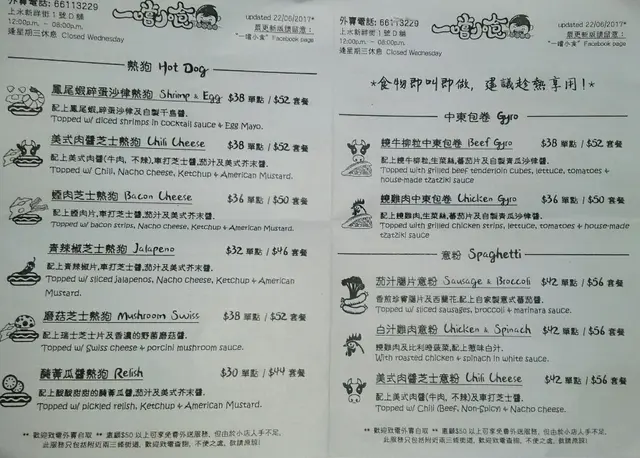 外賣電話: 66113229
上水新祥街1號D舖
12:00p.m. ~ 08:00p.m.
逢星期三休息 Closed Wednesday
一嚐小食
updated 22/06/2017*
最更新版請留意:
"一嚐小食" Facebook page
熱狗 Hot Dog
鳳尾蝦碎蛋沙律熱狗 Shrimp & Egg $38 單點 / $52 套餐
配上鳳尾蝦,碎蛋沙律及自製千島醬.
Topped w/ diced shrimps in cocktail sauce & Egg Mayo.
美式肉醬芝士熱狗 Chili Cheese $38 單點 / $52 套餐
配上美式肉醬(牛肉, 不辣),車打芝士醬,茄汁及美式芥末醬.
Topped w/ Chili, Nacho cheese, Ketchup & American Mustard.
煙肉芝士熱狗 Bacon Cheese $36 單點 / $50 套餐
配上煙肉片,車打芝士醬,茄汁及美式芥末醬.
Topped w/ bacon strips, Nacho cheese, Ketchup & American Mustard.
青辣椒芝士熱狗 Jalapeno $32 單點 / $46 套餐
配上青辣椒片,車打芝士醬,茄汁及美式芥末醬.
Topped w/ sliced Jalapenos, Nacho cheese, Ketchup & American
Mustard.
蘑菇芝士熱狗 Mushroom Swiss $38 單點 / $52 套餐
配上瑞士芝士片及香濃的野菌蘑菇醬.
Topped w/ Swiss cheese & porcini mushroom sauce.
醃菁瓜醬熱狗 Relish $30 單點 / $44 套餐
配上酸酸甜甜的醃菁瓜醬,茄汁及美式芥末醬.
Topped w/ pickled relish, Ketchup & American Mustard.
** 歡迎致電外賣自取 ** 惠顧$50以上可享免費外送服務, 但由於小店人手不足,
此服務只包括附近兩三條街道, 歡迎致電查詢, 不便之處, 敬請原諒!
外賣電話: 66113229
上水新祥街1號D舖
12:00p.m. ~ 08:00p.m.
逢星期三休息 Closed Wednesday
一嚐小食
updated 22/06/2017*
最更新版請留意:
"一嚐小食" Facebook page
*食物即叫即做, 建議趁熱享用!*
中東包卷 Gyro
燒牛柳粒中東包卷 Beef Gyro $38 單點 / $52 套餐
配上燒牛柳粒,生菜絲,蕃茄片及自製青瓜沙律醬.
Topped with grilled beef tenderloin cubes, lettuce, tomatoes &
house-made tzatziki sauce
燒雞肉中東包卷 Chicken Gyro $36 單點 / $50 套餐
配上燒雞肉,生菜絲,蕃茄片及自製青瓜沙律醬.
Topped with grilled chicken strips, lettuce, tomatoes & house-made
tzatziki sauce
意粉 Spaghetti
茄汁腸片意粉 Sausage & Broccoli $42 單點 / $56 套餐
香煎珍寶腸片及西蘭花,配上自家製意式蕃茄醬.
Topped w/ sliced sausages, broccoli & marinara sauce.
白汁雞肉意粉 Chicken & Spinach $42 單點 / $56 套餐
燒雞肉及比利時菠菜,配上惹味白汁.
With roasted chicken & spinach in white sauce.
美式肉醬芝士意粉 Chili Cheese $42 單點 / $56 套餐
配上美式肉醬(牛肉, 不辣)及車打芝士醬.
Topped w/ Chili (Beef, Non-Spicy) & Nacho cheese.
** 歡迎致電外賣自取 ** 惠顧$50以上可享免費外送服務, 但由於小店人手不足,
此服務只包括附近兩三條街道, 歡迎致電查詢, 不便之處, 敬請原諒!